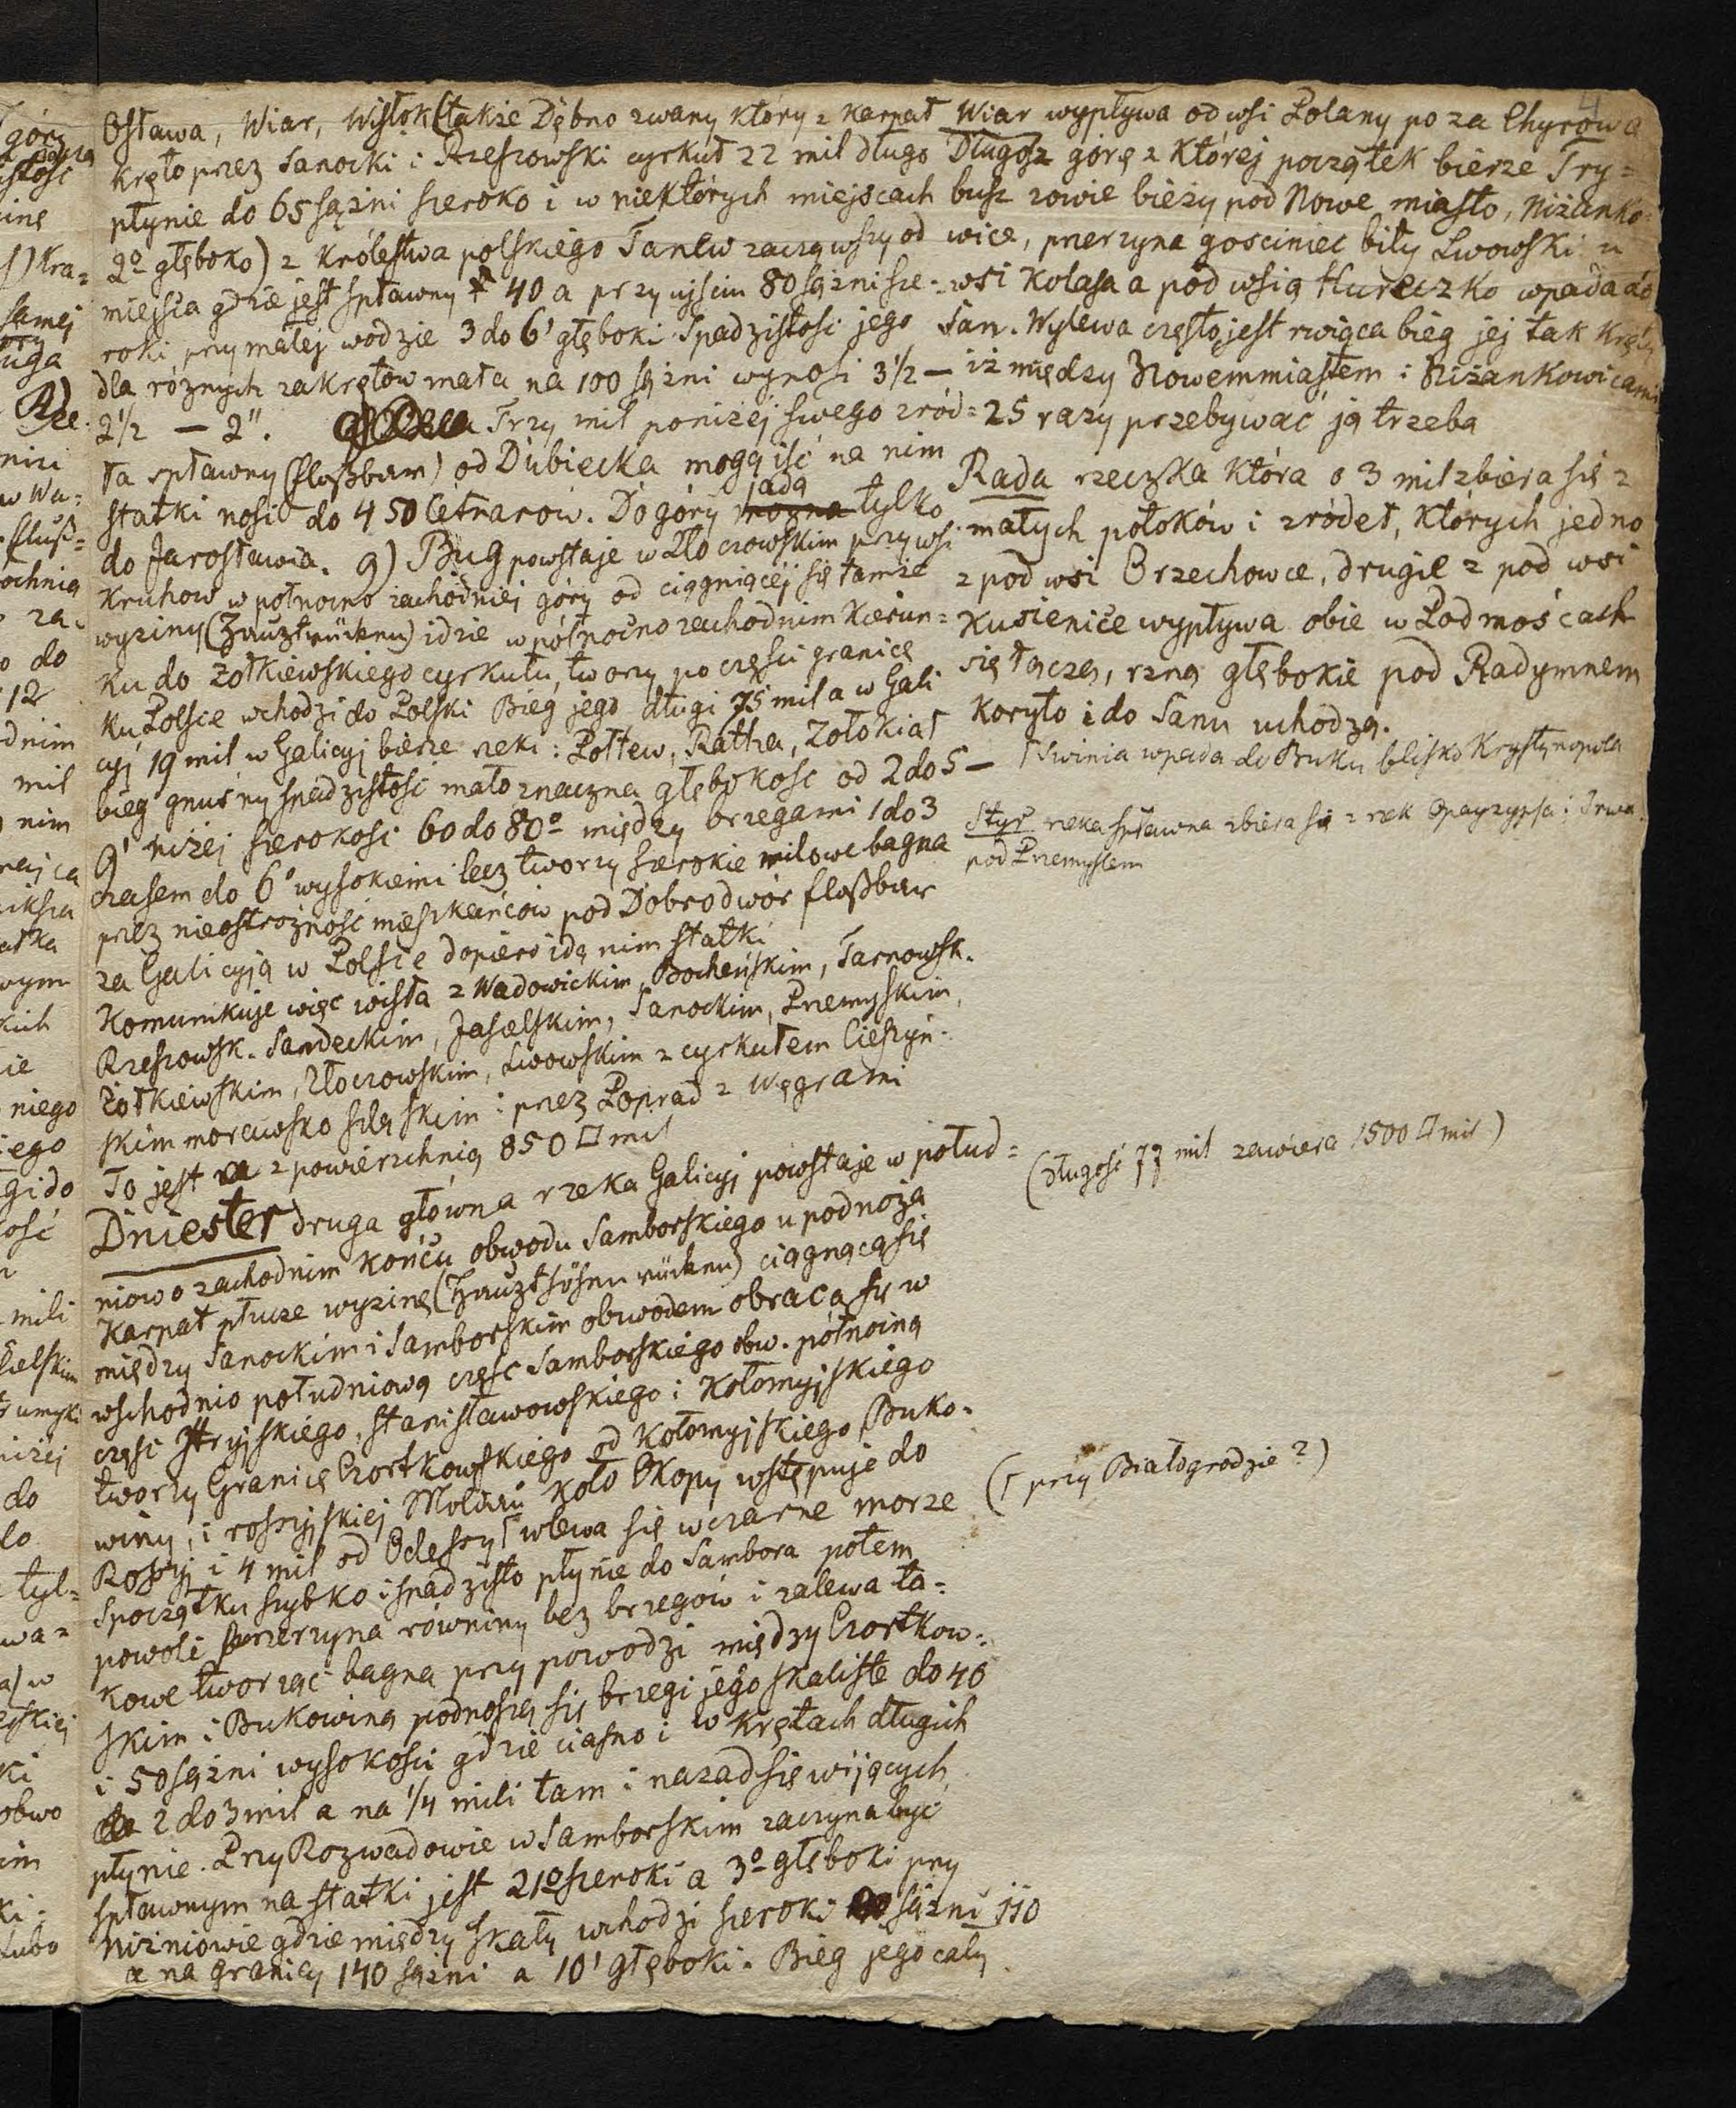 4
Osława, Wiar, Wisłok (także Dębno zwany który z Karpat
kręto przez Sanocki i Rzeszowski cyrkuł 22 mil długo
płynie do 65 sążni szeroko i w niektórych miejscach
2° głęboko) z królestwa polskiego Tanew zacząwszy od
miejsca gdzie jest spławny 40 a przy ujściu 80 sążni sze-
roki przy małej wodzie 3 do 6' głęboki. Spadzistość jego
dla różnych zakrętów mała na 100 sążni wynosi 3 1/2 —
2 1/2 — 2". Trzy mil poniżej swego zród=
ła spławny (floßbar) od Dubiecka mogą iść na nim
statki nosić do 450 Cetnarów. Do góry można jadą tylko
do Jarosławia. g) Bug powstaje w Złoczowskim przy wsi
Kruhow w północno zachodniej góry od ciągnącej się tamże
wyżiny (Hauptrücken) idzie w północno zachodnim kierun=
ku do Żółkiewskiego cyrkułu, tworzy po części granicę
ku Polsce wchodzi do Polski Bieg jego długi 75 mil a w Gali
cyj 19 mil w Galicyj bierze rzeki: Połtew, Ratha, Zołokiał
bieg gnuśny spadzistość mało znaczna głębokość od 2 do 5 —
9' niżej szerokość 60 do 80° między brzegami 1 do 3
czasem do 6° wysokiemi lecz tworzy szerokie milowe bagna
przez nieostrożność mieszkańców pod Dobrodwór floßbar
za Galicyją w Polsce dopiero idą nim statki
Komunikuje więc wisła z Wadowickim, Bocheńskim, Tarnowsk.
Rzeszowsk. Sandeckim, Jasielskim, Sanockim, Przemyskim,
Żółkiewskim, Złoczowskim, Lwowskim z cyrkułem Cieszyń-
skim morawsko śląskim i przez Poprad z Węgrami
To jest z powierzchnią 850 □ mil
Dniester druga główna rzeka Galicyj powstaje w połud=
niowo zachodnim końcu obwodu Samborskiego u podnoża
Karpat płucze wyżinę (Haupthöhenrücken) ciągnącą się
między Sanockim i Samborskim obwodem obraca się w
wschodnio południową część Samborskiego obw. północną
części Stryjskiego, Stanisławowskiego i Kołomyjskiego
tworzy Granicę Czortkowskiego od Kołomyjskiego, Buko-
winy, i rossyjskiej Moldau koło Okopy wstępuje do
Rossyj i 4 mil od Odessy ſ wlewa się w czarne morze
Spoczątku szybko i spadzisto płynie do Sambora potem
powoli przerzyna równiny bez brzegów i zalewa ta-
kowe tworząc bagna przy powodzi między Czortkow-
skim i Bukowiną podnoszą się brzegi jego skaliste do 40
i 50 sążni wysokości gdzie ciasno i w krętach długich
2 do 3 mil a na 1/4 mili tam i nazad się wijących
płynie. Przy Rozwadowie w Samborskim zaczyna być
spławnym na statki jest 21° szeroki a 3° głęboki przy
Niżniowie gdzie między skały wchodzi szeroki sążni 110
a na granicy 140 sążni a 10' głęboki. Bieg jego cały
Wiar wypływa od wsi Polany po za Chyrowa
Długosz górę z której początek bierze Try=
busz zowie bieży pod Nowe miasto, Niżanko=
wice, przerzyna gościniec bity Lwowski u
wsi Kolasa a pod wsią Hureczko wpada do
San. Wylewa często, jest rwiąca bieg jej tak kręty
iż między Nowemmiastem i Niżankowicami
25 razy przebywać ją trzeba
Rada rzeczka która o 3 mil zbiera się z
małych potoków i zródeł, których jedno
z pod wsi Orzechowce, drugie z pod wsi
Kusienice wypływa obie w Podmoścach
się łączą, rzną głębokie pod Radymnem
koryto i do Sanu uchodzą.
Swinia wpada do Buku blisko Krystynopola
Styr rzeka spławna zbiera się z rzek i
pod Przemysłem
(Długość 77 mil zawiera 1500 □ mil)
(ſ przy Białogrodzie?)